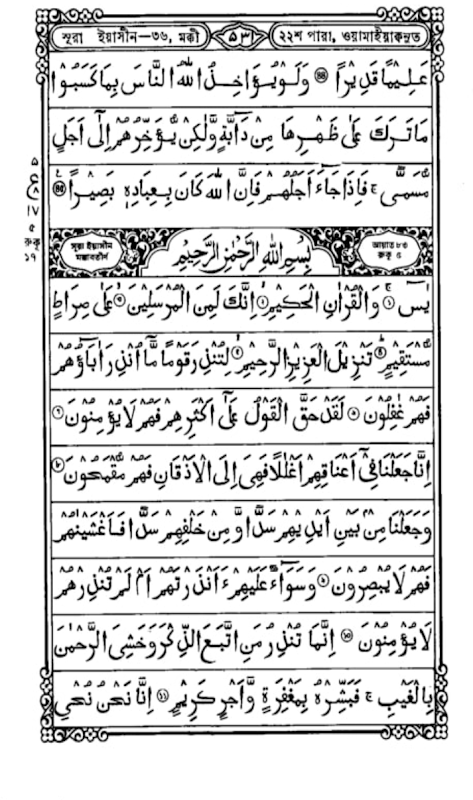 সূরা ইয়াসীন—৩৬, মক্কী ৫৩১ ২২শ পারা, ওয়ামাইয়াক্বনুত
عَلِيْمًا قَدِيْرًا ﴿٤٤﴾ وَلَوْ يُؤَاخِذُ اللّٰهُ النَّاسَ بِمَا كَسَبُوْا
مَا تَرَكَ عَلٰى ظَهْرِهَا مِنْ دَآبَّةٍ وَّلٰكِنْ يُّؤَخِّرُهُمْ اِلٰٓى اَجَلٍ
مُّسَمًّى ۚ فَاِذَا جَآءَ اَجَلُهُمْ فَاِنَّ اللّٰهَ كَانَ بِعِبَادِهٖ بَصِيْرًا ﴿٤٥﴾
৫
ع
١٧
৫
রুকূ
১৭
সূরা ইয়াসীন
মক্কাবতীর্ণ
بِسْمِ اللّٰهِ الرَّحْمٰنِ الرَّحِيْمِ
আয়াত ৮৩
রুকূ ৫
يٰسٓ ۚ﴿١﴾ وَالْقُرْاٰنِ الْحَكِيْمِ ۙ﴿٢﴾ اِنَّكَ لَمِنَ الْمُرْسَلِيْنَ ۙ﴿٣﴾ عَلٰى صِرَاطٍ
مُّسْتَقِيْمٍ ؕ﴿٤﴾ تَنْزِيْلَ الْعَزِيْزِ الرَّحِيْمِ ۙ﴿٥﴾ لِتُنْذِرَ قَوْمًا مَّآ اُنْذِرَ اٰبَآؤُهُمْ
فَهُمْ غٰفِلُوْنَ ﴿٦﴾ لَقَدْ حَقَّ الْقَوْلُ عَلٰٓى اَكْثَرِهِمْ فَهُمْ لَا يُؤْمِنُوْنَ ﴿٧﴾
اِنَّا جَعَلْنَا فِيْٓ اَعْنَاقِهِمْ اَغْلٰلًا فَهِيَ اِلَى الْاَذْقَانِ فَهُمْ مُّقْمَحُوْنَ ﴿٨﴾
وَجَعَلْنَا مِنْۢ بَيْنِ اَيْدِيْهِمْ سَدًّا وَّمِنْ خَلْفِهِمْ سَدًّا فَاَغْشَيْنٰهُمْ
فَهُمْ لَا يُبْصِرُوْنَ ﴿٩﴾ وَسَوَآءٌ عَلَيْهِمْ ءَاَنْذَرْتَهُمْ اَمْ لَمْ تُنْذِرْهُمْ
لَا يُؤْمِنُوْنَ ﴿١٠﴾ اِنَّمَا تُنْذِرُ مَنِ اتَّبَعَ الذِّكْرَ وَخَشِيَ الرَّحْمٰنَ
بِالْغَيْبِ ۚ فَبَشِّرْهُ بِمَغْفِرَةٍ وَّاَجْرٍ كَرِيْمٍ ﴿١١﴾ اِنَّا نَحْنُ نُحْيِ